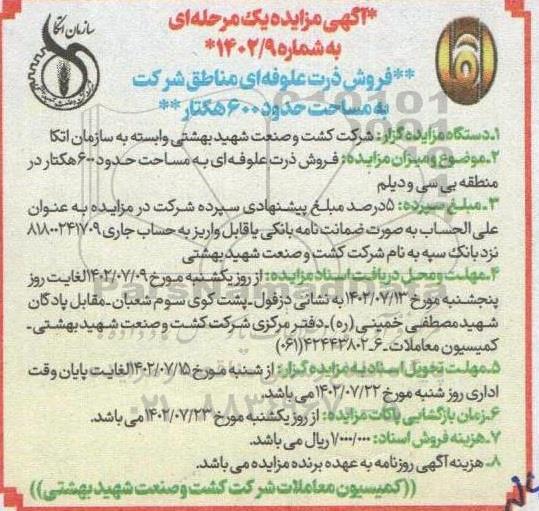 سازمان اتکا
*آگهی مزایده یک مرحله‌ای
به شماره ۱۴۰۲/۹*
**فروش ذرت علوفه‌ای مناطق شرکت
به مساحت حدود ۶۰۰ هکتار**
۱ـ دستگاه مزایده گزار: شرکت کشت و صنعت شهید بهشتی وابسته به سازمان اتکا
۲ـ موضوع و میزان مزایده: فروش ذرت علوفه‌ای به مساحت حدود ۶۰۰ هکتار در
منطقه بی سی و دیلم
۳ـ مبلغ سپرده: ۵ درصد مبلغ پیشنهادی سپرده شرکت در مزایده به عنوان
علی الحساب به صورت ضمانت نامه بانکی یا قابل واریز به حساب جاری ۸۱۸۰۰۲۴۱۷۰۹
نزد بانک سپه به نام شرکت کشت و صنعت شهید بهشتی
۴ـ مهلت و محل دریافت اسناد مزایده: از روز یکشنبه مورخ ۱۴۰۲/۰۷/۰۹ لغایت روز
پنجشنبه مورخ ۱۴۰۲/۰۷/۱۳ به نشانی دزفول ـ پشت کوی سوم شعبان ـ مقابل پادگان
شهید مصطفی خمینی (ره) ـ دفتر مرکزی شرکت کشت و صنعت شهید بهشتی ـ
کمیسیون معاملات ـ ۶ ـ ۴۲۴۴۳۸۰۲ (۰۶۱)
۵ـ مهلت تحویل اسناد به مزایده گزار: از شنبه مورخ ۱۴۰۲/۰۷/۱۵ لغایت پایان وقت
اداری روز شنبه مورخ ۱۴۰۲/۰۷/۲۲ می باشد.
۶ـ زمان بازگشایی پاکات مزایده: از روز یکشنبه مورخ ۱۴۰۲/۰۷/۲۳ می باشد.
۷ـ هزینه فروش اسناد: ۱/۰۰۰/۰۰۰ ریال می باشد.
۸ـ هزینه آگهی روزنامه به عهده برنده مزایده می باشد.
((کمیسیون معاملات شرکت کشت و صنعت شهید بهشتی))